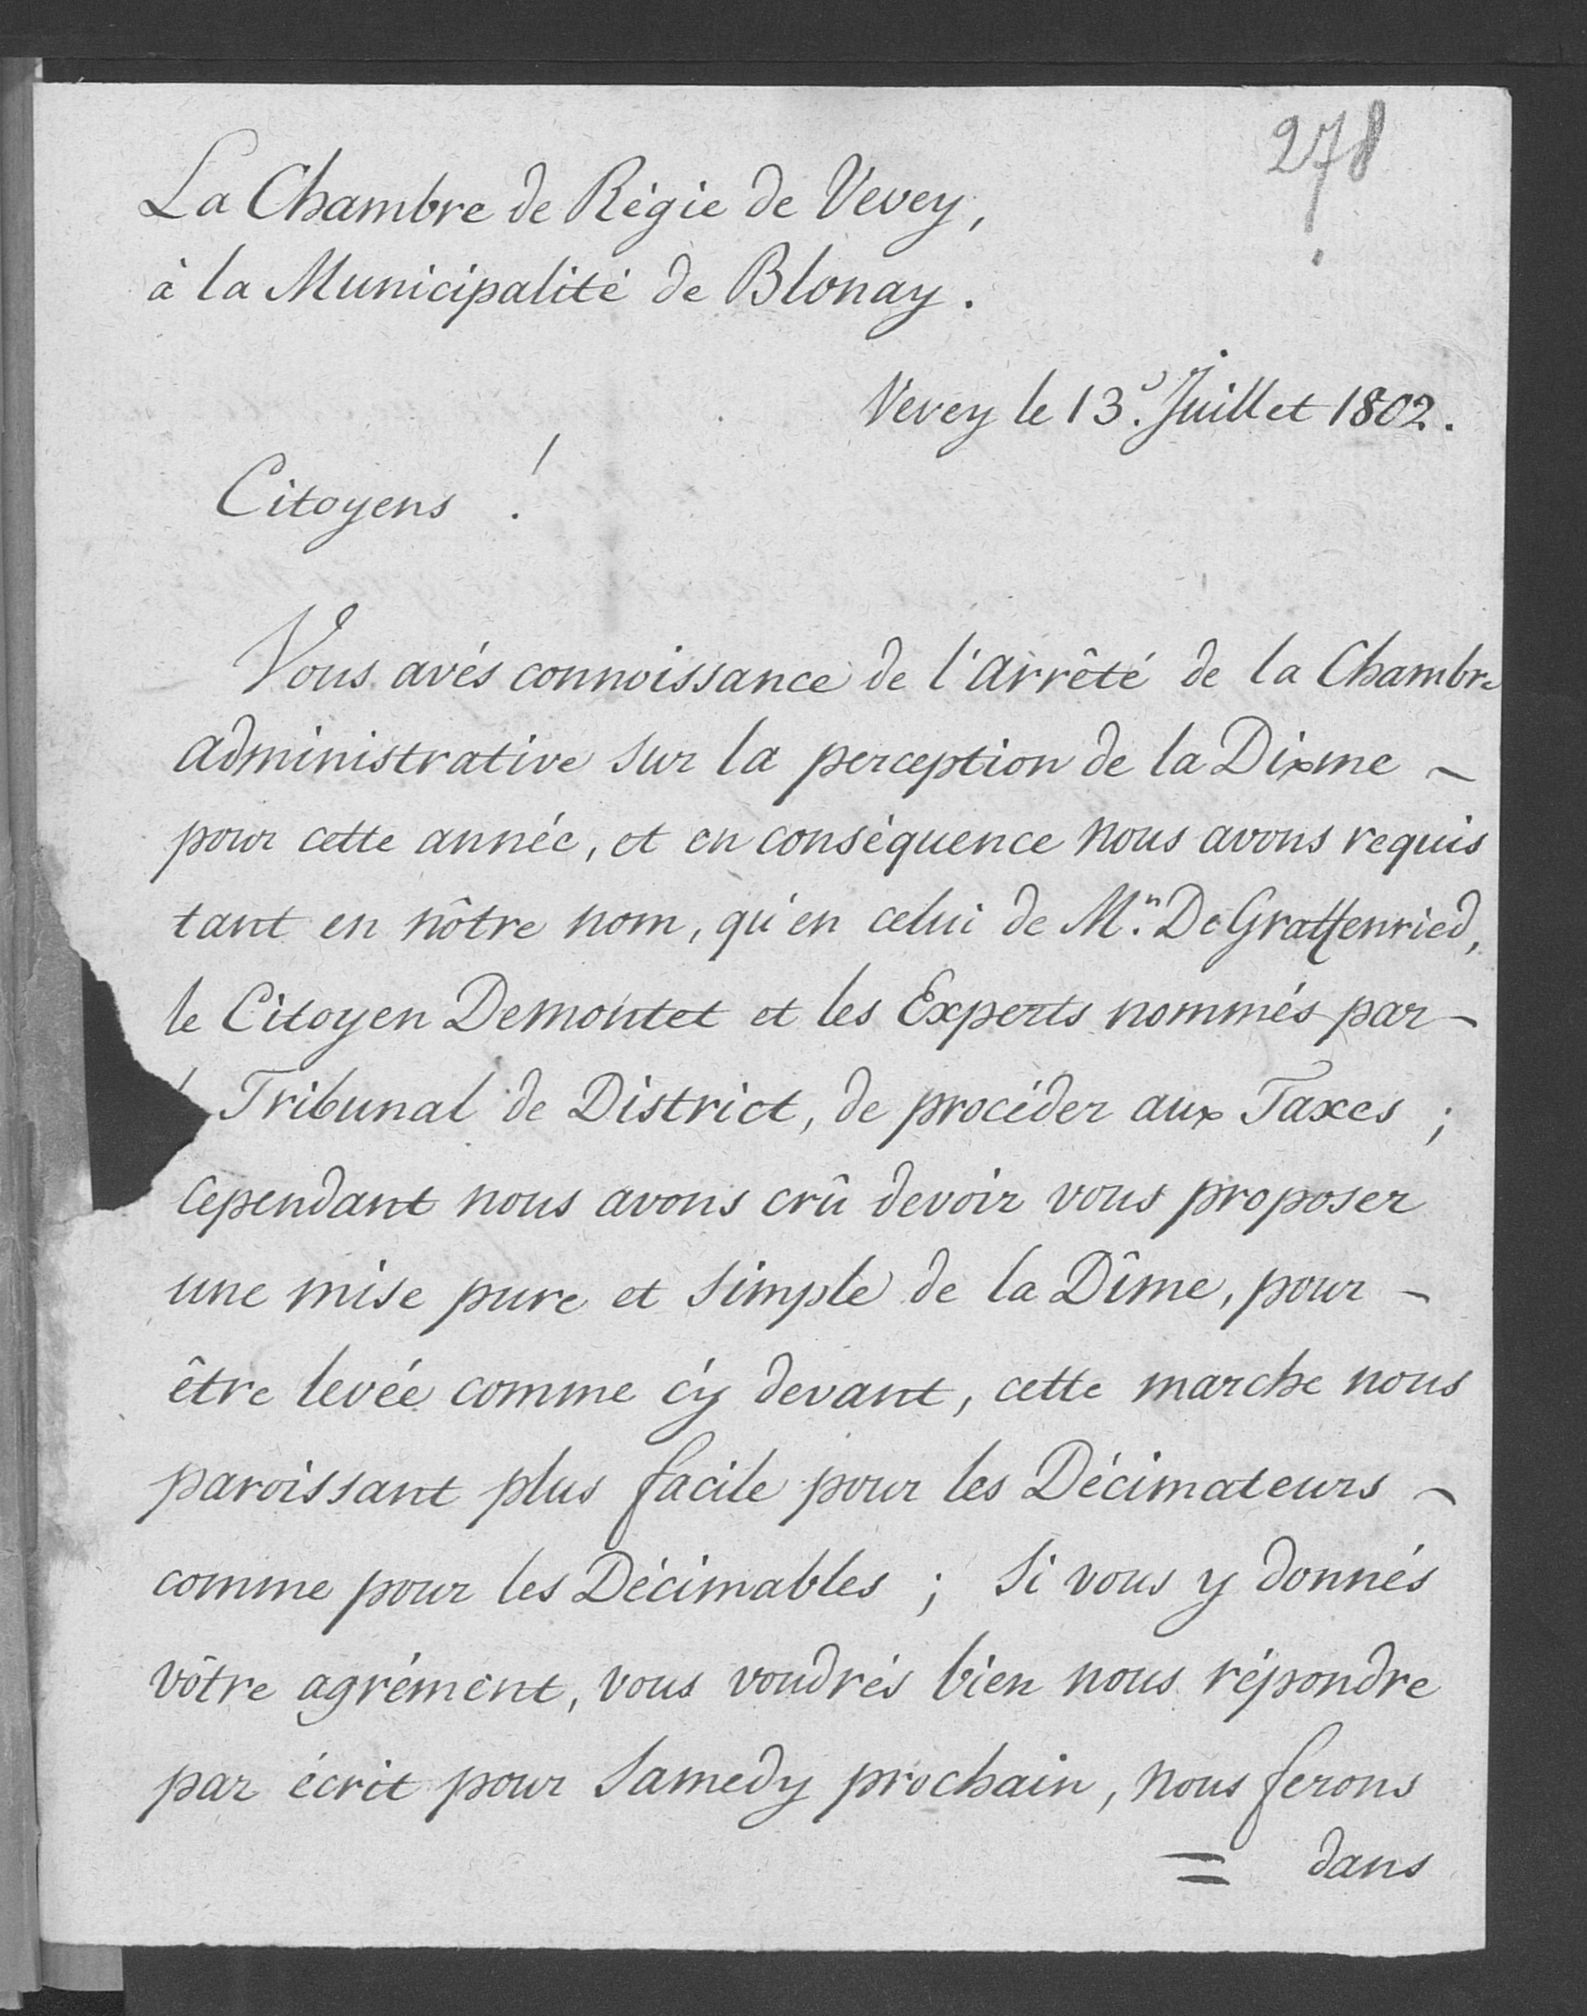 278
La Chambre de Régie de Vevey,
à la Municipalité de Blonay.
Vevey le 13.e Juillet 1802.
Citoyens !
Vous avés connoissance de l'arrêté de la Chambre
administrative sur la perception de la Dixme -
pour cette année, et en conséquence nous avons requis
tant en nôtre nom, qu'en celui de M.r De Graffenried,
le Citoyen Demontet et les Experts nommés par -
Tribunal de District, de procéder aux Taxes ;
cependant nous avons crû devoir vous proposer
une mise pure et simple de la Dîme, pour -
être levée comme cÿ devant, cette marche nous
paroissant plus facile pour les Décimateurs -
comme pour les Décimables ; Si vous y donnés
vôtre agrément, vous voudrés bien nous répondre
par écrit pour Samedy prochain, nous ferons
= dans